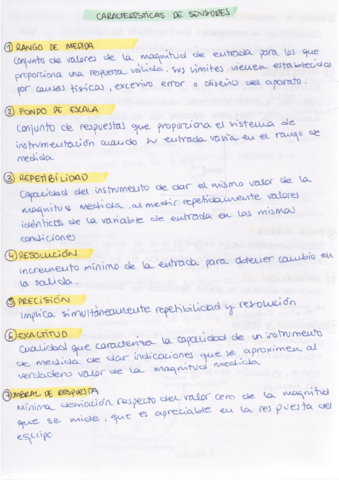 CARACTERÍSTICAS DE SENSORES
① RANGO DE MEDIDA
Conjunto de valores de la magnitud de entrada para los que
proporciona una repuesta válida. Sus límites vienen establecidos
por causas físicas, excesivo error o diseño del aparato.
② FONDO DE ESCALA
Conjunto de respuestas que proporciona el sistema de
instrumentación cuando su entrada varía en el rango de
medida
③ REPETIBILIDAD
Capacidad del instrumento de dar el mismo valor de la
magnitud medida, al medir repetidamente valores
idénticos de la variable de entrada en las mismas
condiciones
④ RESOLUCIÓN
Incremento mínimo de la entrada para obtener cambio en
la salida.
⑤ PRECISIÓN
Implica simultáneamente repetibilidad y resolución
⑥ EXACTITUD
Cualidad que caracteriza la capacidad de un instrumento
de medida de dar indicaciones que se aproximen al
verdadero valor de la magnitud medida
⑦ UMBRAL DE RESPUESTA
Mínima desviación respecto del valor cero de la magnitud
que se mide, que es apreciable en la respuesta del
equipo